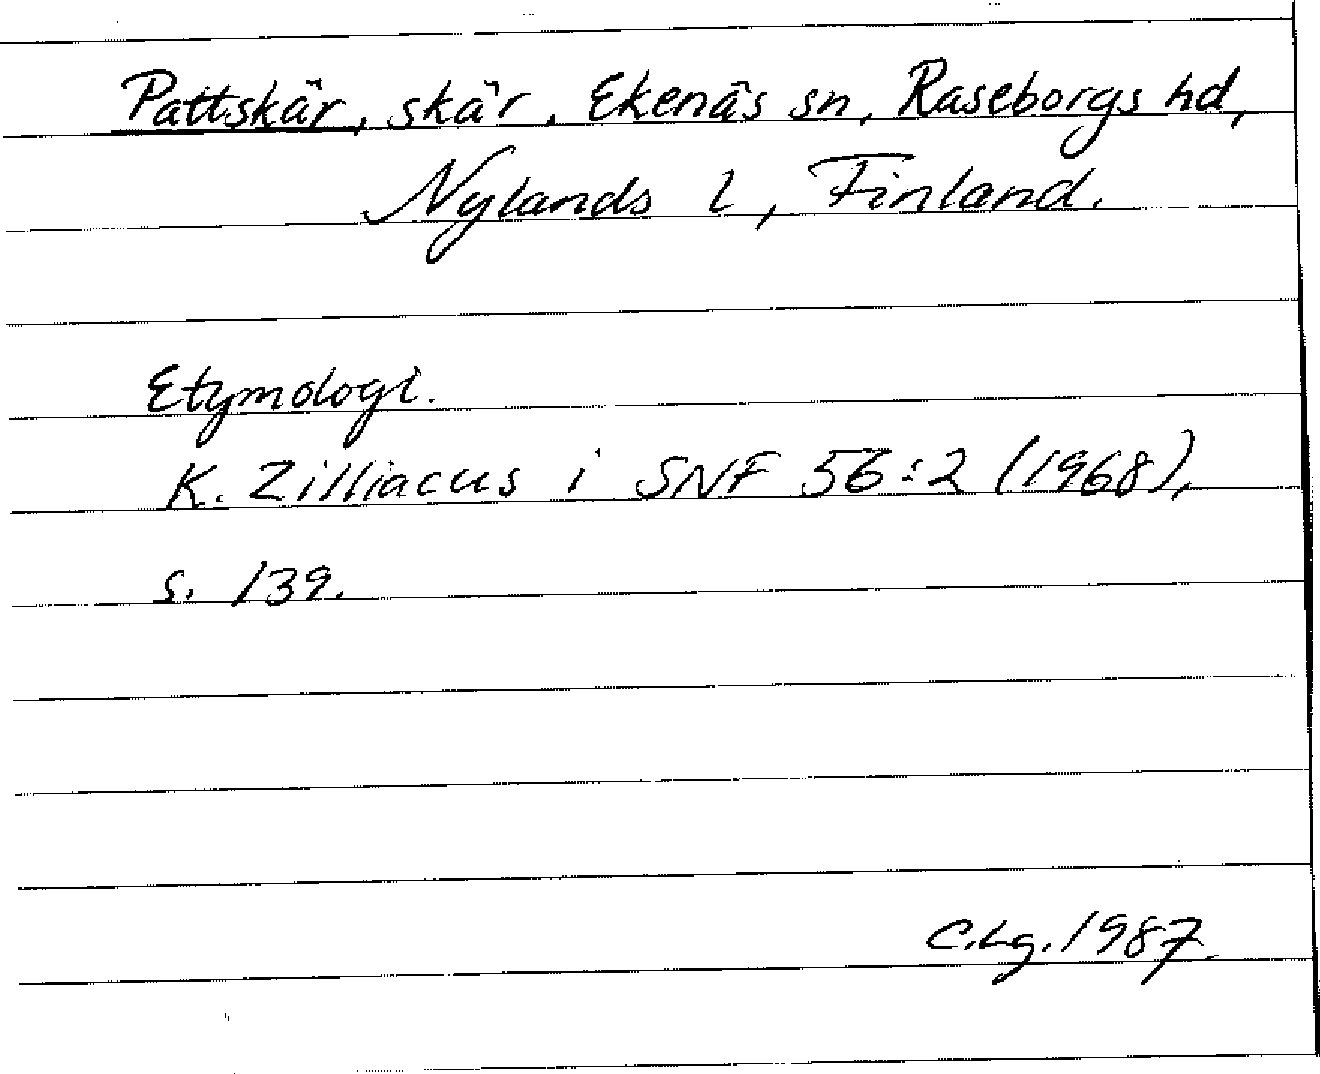 Pattskär, skär, Ekenäs sn, Raseborgs hd,
Nylands l, Finland.
Etymologi.
K. Zilliacus i SNF 56:2 (1968),
s. 139.
C.Lg. 1987.